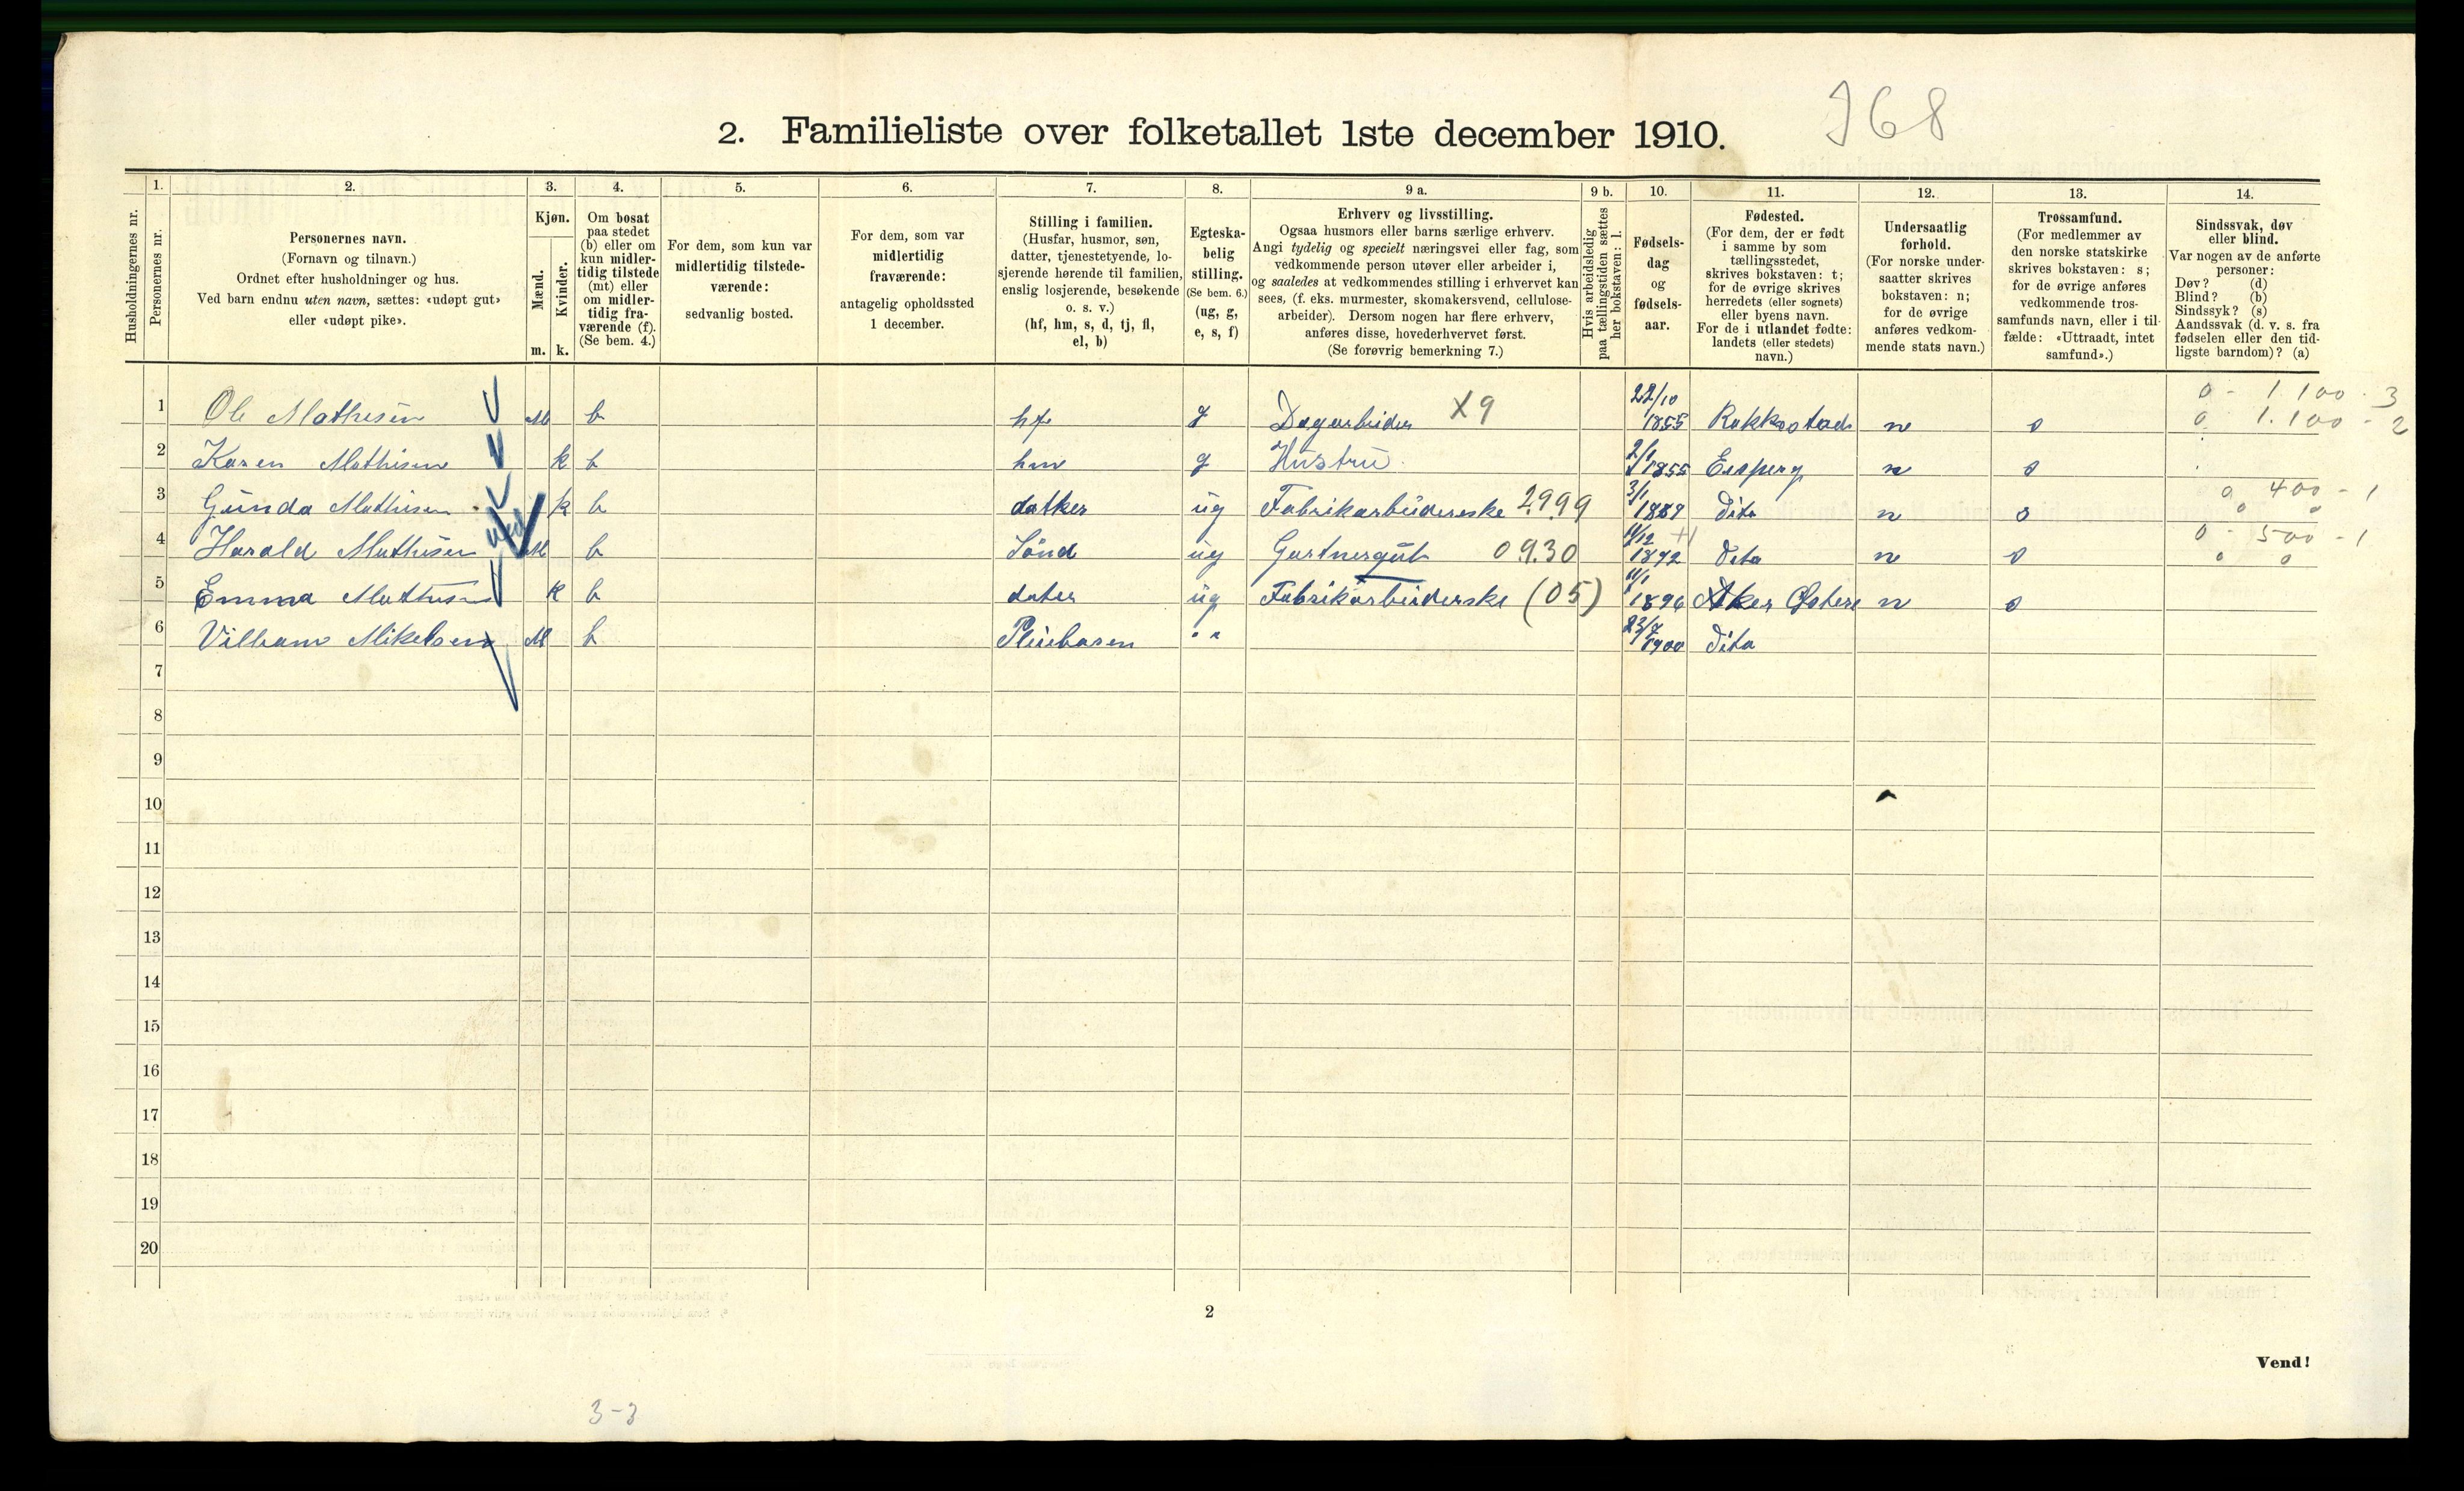 368
2. Familieliste over folketallet 1ste december 1910.
Husholdningernes nr.
1. Personernes nr.
2. Personernes navn. (Fornavn og tilnavn.) Ordnet efter husholdninger og hus. Ved barn endnu uten navn, sættes: «udøpt gut» eller «udøpt pike».
3. Kjøn. Mænd. m. Kvinder. k.
4. Om bosat paa stedet (b) eller om kun midlertidig tilstede (mt) eller om midlertidig fraværende (f). (Se bem. 4.)
5. For dem, som kun var midlertidig tilstedeværende: sedvanlig bosted.
6. For dem, som var midlertidig fraværende: antagelig opholdssted 1 december.
7. Stilling i familien. (Husfar, husmor, søn, datter, tjenestetyende, losjerende hørende til familien, enslig losjerende, besøkende o. s. v.) (hf, hm, s, d, tj, fl, el, b)
8. Egteskabelig stilling. (Se bem. 6.) (ug, g, e, s, f)
9 a. Erhverv og livsstilling. Ogsaa husmors eller barns særlige erhverv. Angi tydelig og specielt næringsvei eller fag, som vedkommende person utøver eller arbeider i, og saaledes at vedkommendes stilling i erhvervet kan sees, (f. eks. murmester, skomakersvend, cellulosearbeider). Dersom nogen har flere erhverv, anføres disse, hovederhvervet først. (Se forøvrig bemerkning 7.)
9 b. Hvis arbeidsledig paa tællingstiden sættes her bokstaven: l.
10. Fødselsdag og fødselsaar.
11. Fødested. (For dem, der er født i samme by som tællingsstedet, skrives bokstaven: t; for de øvrige skrives herredets (eller sognets) eller byens navn. For de i utlandet fødte: landets (eller stedets) navn.)
12. Undersaatlig forhold. (For norske undersaatter skrives bokstaven: n; for de øvrige anføres vedkommende stats navn.)
13. Trossamfund. (For medlemmer av den norske statskirke skrives bokstaven: s; for de øvrige anføres vedkommende trossamfunds navn, eller i tilfælde: «Uttraadt, intet samfund».)
14. Sindssvak, døv eller blind. Var nogen av de anførte personer: Døv? (d) Blind? (b) Sindssyk? (s) Aandssvak (d. v. s. fra fødselen eller den tidligste barndom)? (a)
1 Ole Mathisen M b hf g Dagarbeider X9 22/10 1855 Rakkestad n s 0 - 1.100 - 3 0 1.100 - 2
2 Karen Mathisen k b hm g Hustru 2/1 1855 Eisperg n s
3 Gunda Mathisen k b datter ug Fabrikarbeidereske 2999 3/1 1889 Dito n s 0 400 - 1 0 0
4 Harald Mathisen M b Sønd ug Gartnergut 0930 11/12 1892 Dito n s 0 - 500 - 1 0 0
5 Emma Mathisen k b dater ug Fabrikarbeiderske (05) 11/1 1896 Aker Østere n s
6 Vilham Mikelsen M b Pleiebasen " 23/7 1900 Dito
7
8
9
10
11
12
13
14
15
16
17
18
19
20
2
Vend!
3-3